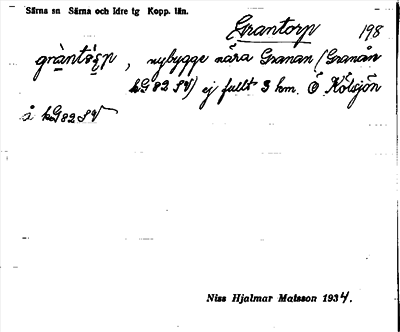 Särna sn Särna och Idre tg Kopp. län.
Grantorp 198
gràntǻrp, nybygge nära Granan (Granån
kG 82 SV) ej fullt 3 km. Ö Kölsjön
å kG 82 SV
Niss Hjalmar Matsson 1934.